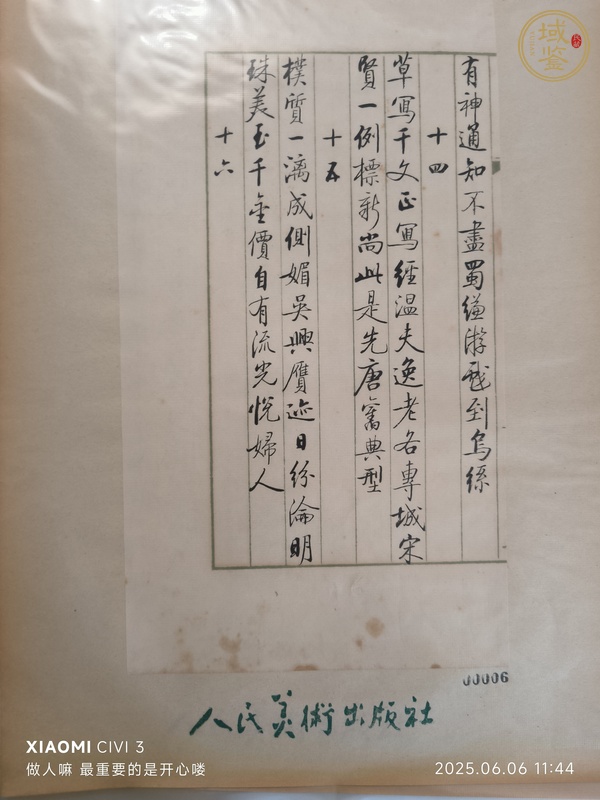 有神通知不盡蜀縑游戲到烏絲
十四
草寫千文正寫經溫夫逸老各專城宋
賢一例標新尚此是先唐舊典型
十五
樸質一漓成側媚吳興贋迹日紛淪明
珠美玉千金價自有流光悅婦人
十六
00006
人民美術出版社
域鉴
XIAOMI CIVI 3
做人嘛 最重要的是开心喽
2025.06.06 11:44